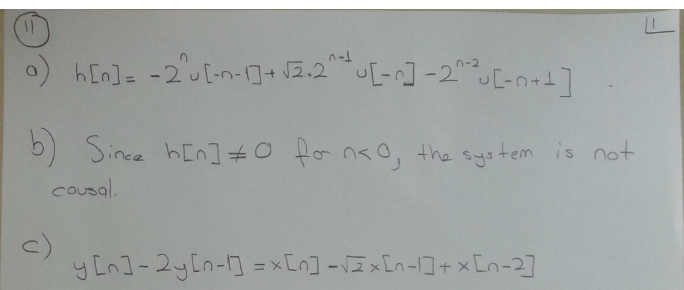 11
a) h[n] = -2^n u[-n-1] + √2.2^{n-1} u[-n] - 2^{n-2} u[-n+1]
b) Since h[n] ≠ 0 for n<0, the system is not
causal.
c)
y[n] - 2y[n-1] = x[n] - √2 x[n-1] + x[n-2]